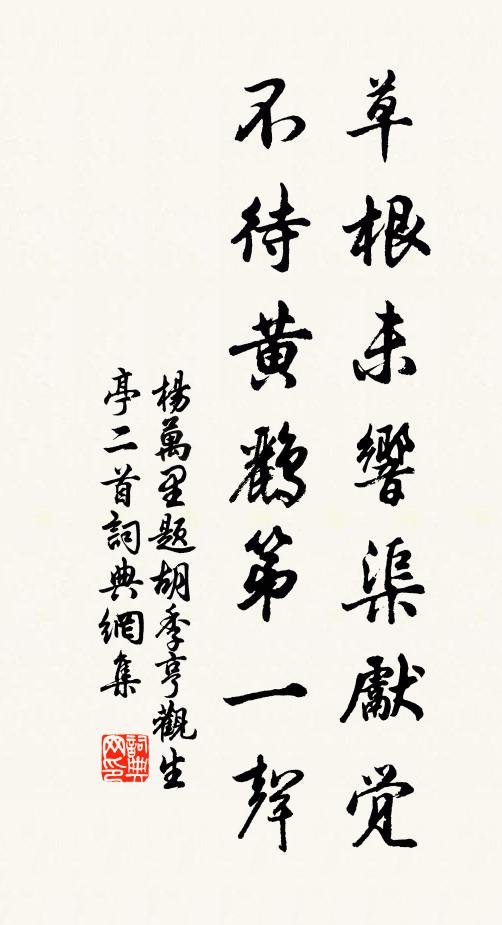 草根未響渠獻觉
不待黃鸝第一聲
楊萬里題胡季亨觀生
亭二首詞典網集
詞典
网印